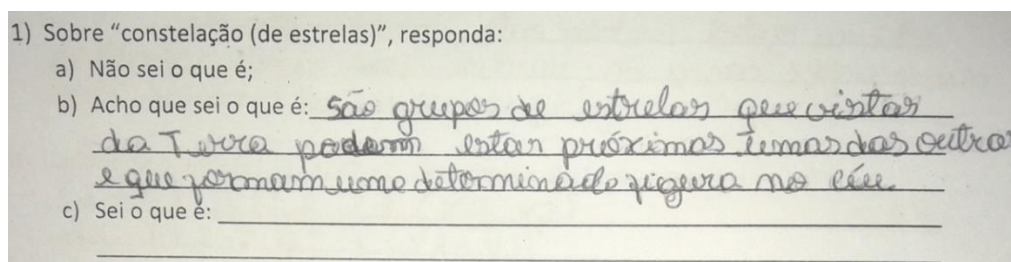 1) Sobre “constelação (de estrelas)”, responda:
a) Não sei o que é;
b) Acho que sei o que é: São grupos de estrelas que vistas
da Terra podem estar próximas umas das outra
e que formam uma determinado figura no céu.
c) Sei o que é: